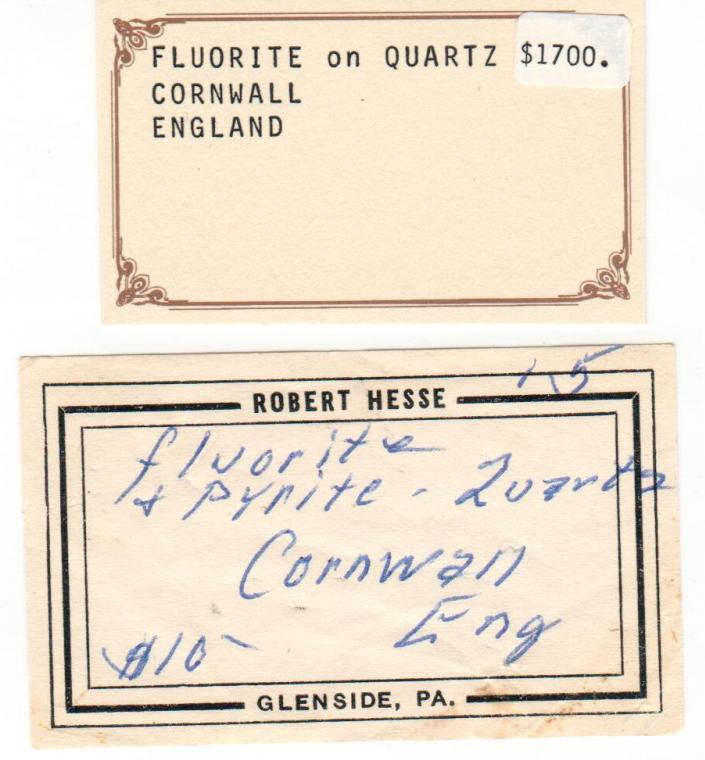 FLUORITE on QUARTZ $1700.
CORNWALL
ENGLAND
ROBERT HESSE
fluorite
+ Pyrite - Quartz
Cornwall
Eng
$10-
GLENSIDE, PA.